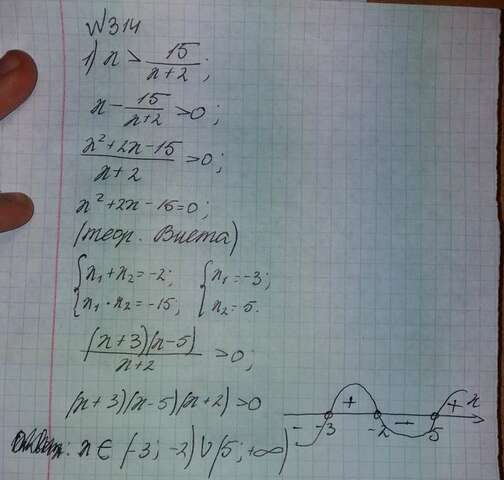 №314
1) x > 15/(x+2);
x - 15/(x+2) > 0;
(x²+2x-15)/(x+2) > 0;
x²+2x-15=0;
(теор. Виета)
{x₁+x₂=-2; {x₁=-3;
{x₁·x₂=-15; {x₂=5.
(x+3)(x-5)/(x+2) > 0;
(x+3)(x-5)(x+2)>0
- -3 + -2 - 5 + x
Ответ: x ∈ (-3; -2) ∪ (5; +∞)